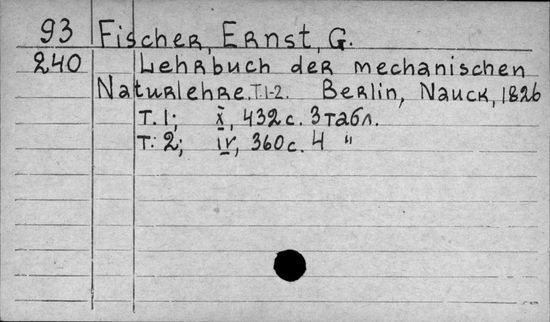 93 Fischer, Ernst, G.
240 Lehrbuch der mechanischen
Naturlehre. T.1-2. Berlin, Nauck, 1826
T. 1; X, 432 с. 3 табл.
T. 2; IV, 360 с. 4 "